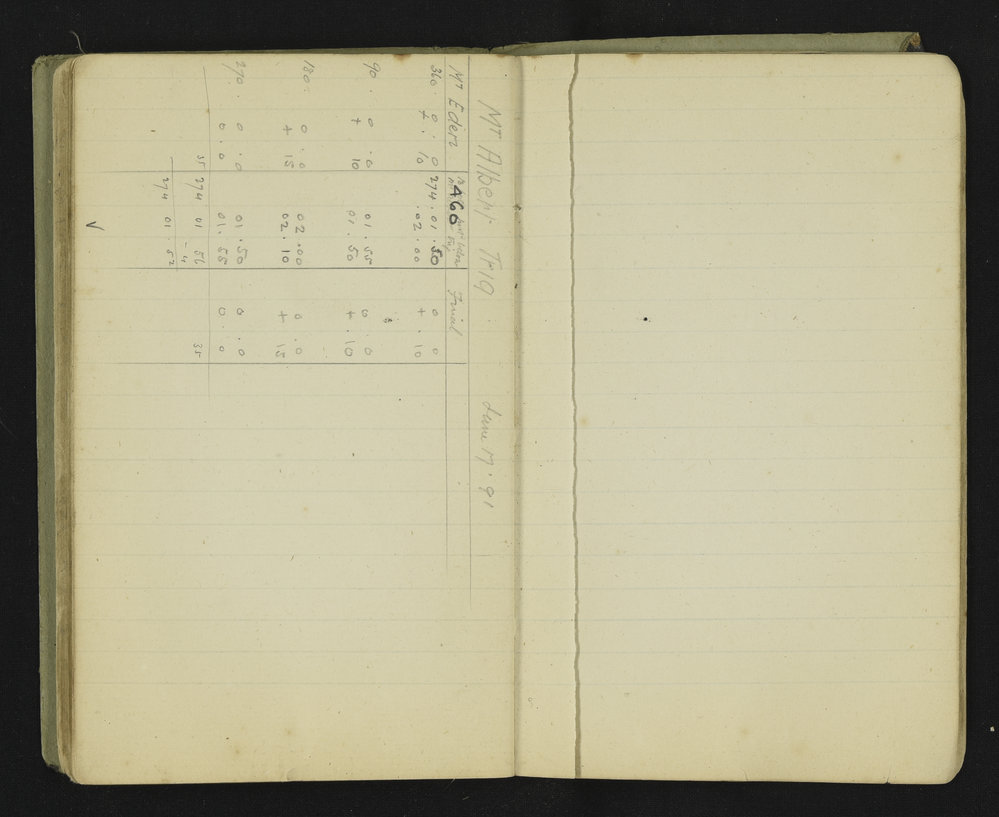 Mt Albert Trig June 17.91
Mt Eden Final
360. 0 . 0 274.01.50 0 0
+ . 10 .02.00 + . 10
90. 0 .0 01.55 0 . 0
+ 10 01.50 + .10
180. 0 .0 02.00 0 .0
+ 15 02.10 + 15
270. 0 . 0 01.50 0 . 0
0 . 0 01.55 0 0
35 274 01 56 35
- 4
274 01.52